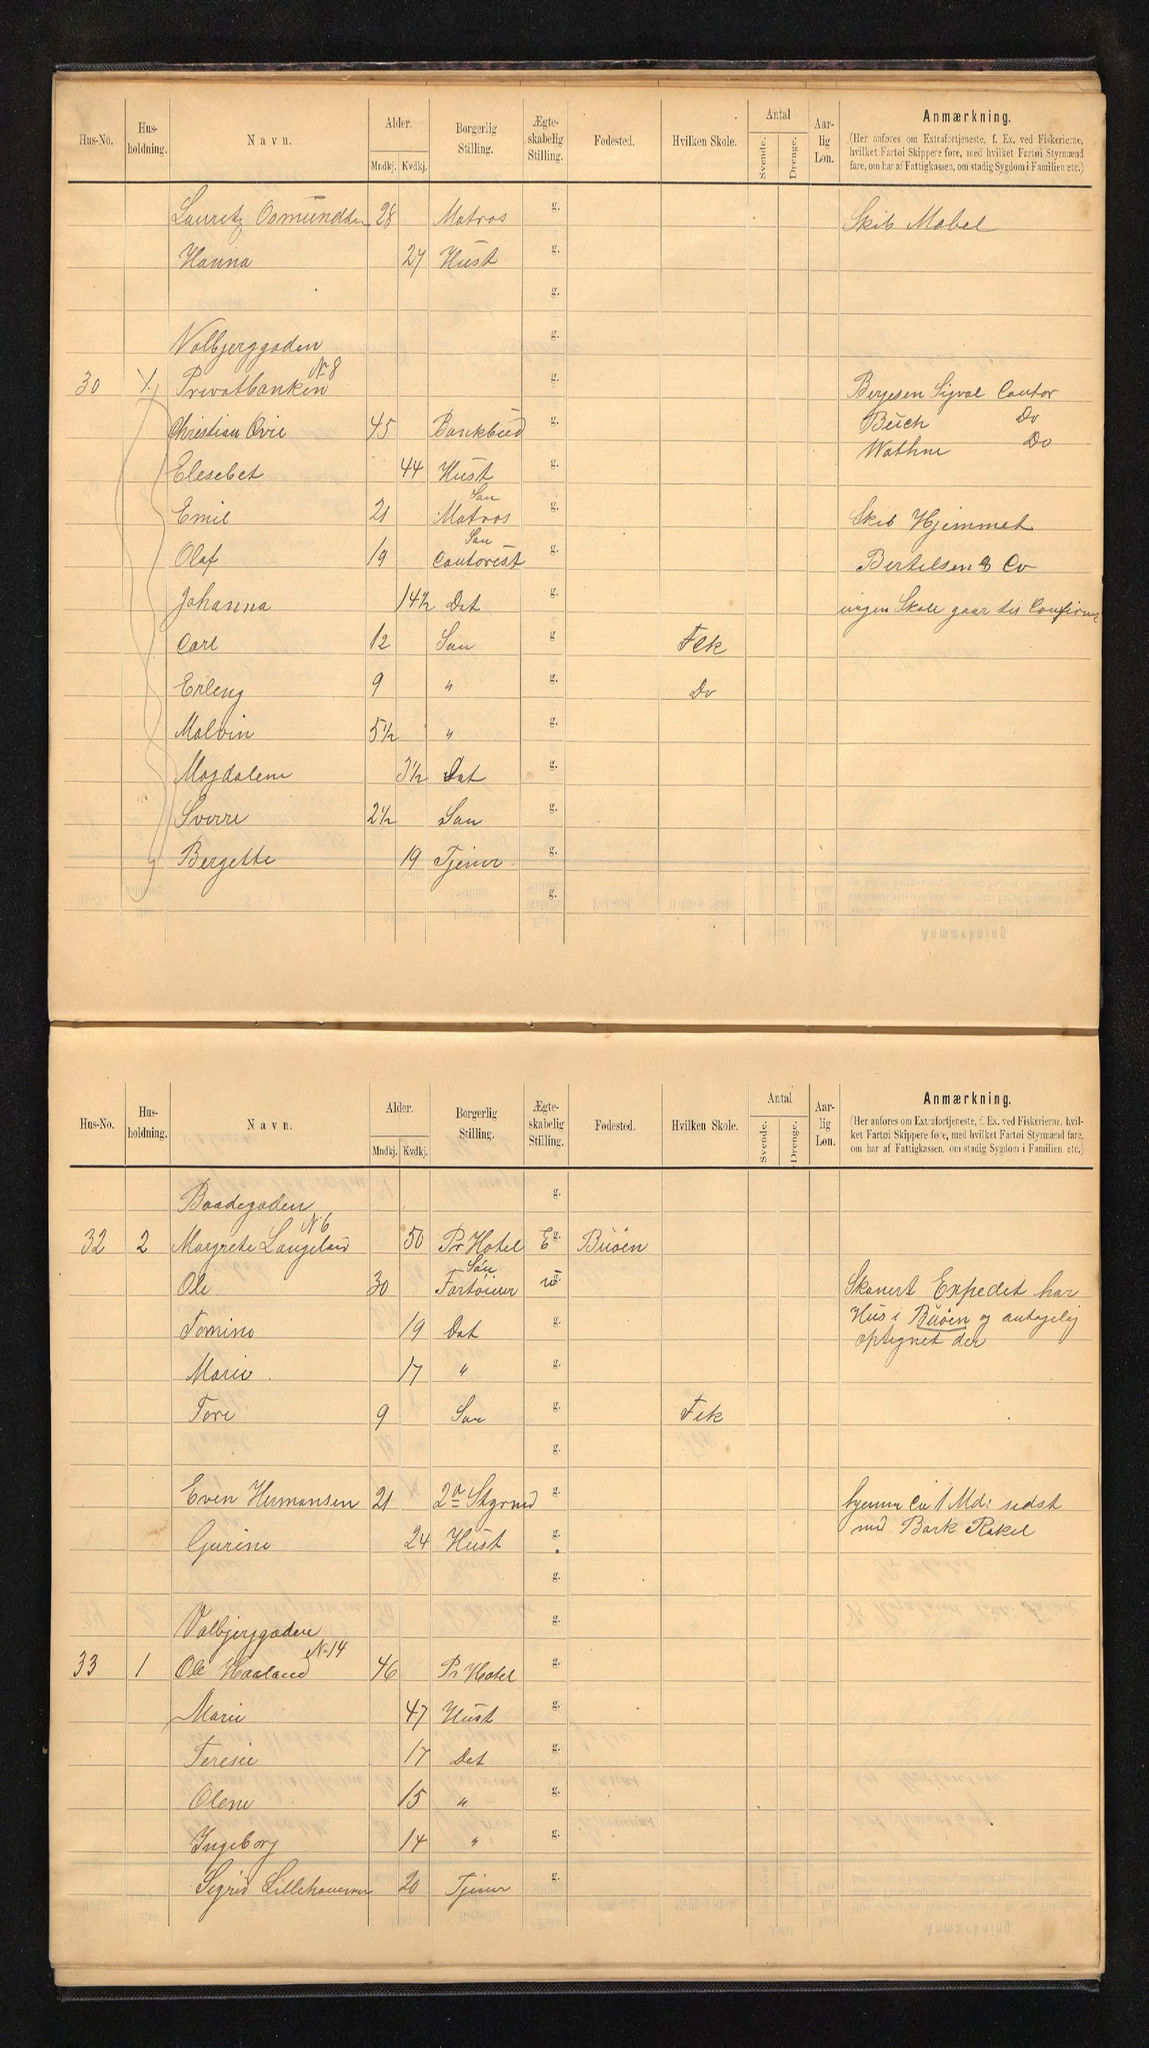 Hus-No. Hus-holdning. Navn. Alder. Mndkj. Kvdkj. Borgerlig Stilling. Ægte-skabelig Stilling. Fødested. Hvilken Skole. Antal Svende. Drenge. Aar-lig Løn. Anmærkning.
(Her anføres om Extrafortjeneste, f. Ex. ved Fiskerierne,
hvilket Fartøi Skippere føre, med hvilket Fartøi Styrmænd
fare, om har af Fattigkassen, om stadig Sygdom i Familien etc.)
Lauritz Osmundsen 28 Matros g. Skib Mabel
Hanna 27 Hust g.
g.
Valbjerggaden g.
30 1 Privatbanken N. 8 g. Bergesen Sigval Contor
Christian Ovie 45 Bankbud g. Buch Do
Elesebet 44 Hust g. Wathne Do
Emil 21 Søn Matros g. Skib Hjemmet
Olaf 19 Søn Contorist g. Bertelsen & Co
Johanna 14½ Dat g. ingen Skole gaar til Confirm
Carl 12 Søn g. Flk
Erling 9 " g. Do
Malvin 5½ " g.
Magdalene 3½ Dat g.
Sverre 2½ Søn g.
Bergette 19 Tjener g.
g.
Hus-No. Hus-holdning. Navn. Alder. Mndkj. Kvdkj. Borgerlig Stilling. Ægte-skabelig Stilling. Fødested. Hvilken Skole. Antal Svende. Drenge. Aar-lig Løn. Anmærkning.
(Her anføres om Extrafortjeneste, f. Ex. ved Fiskerierne, hvil-
ket Fartøi Skippere føre, med hvilket Fartøi Styrmænd fare,
om har af Fattigkassen, om stadig Sygdom i Familien etc.)
Baadegaden g.
32 2 Margrete Langeland N. 6 50 Pr Hotel E g. Buøen
Ole 30 Søn Fartøier g. Skonert Expedet har
Tomine 19 Dat g. Hus i Buøen og antagelig
optegnet der
Marie 17 " g.
Tore 9 Søn g. Flk
g.
Even Hermansen 21 2den Styrmd g. hjemme Ca 1 Md: sidst
med Bark Rakel
Gurine 24 Hust g.
g.
Valbjerggaden g.
33 1 Ole Haaland N. 14 46 Pr Hotel g.
Marie 47 Hust g.
Teresie 17 Dat g.
Olene 15 " g.
Ingeborg 14 " g.
Sigrid Lillehammer 20 Tjener g.